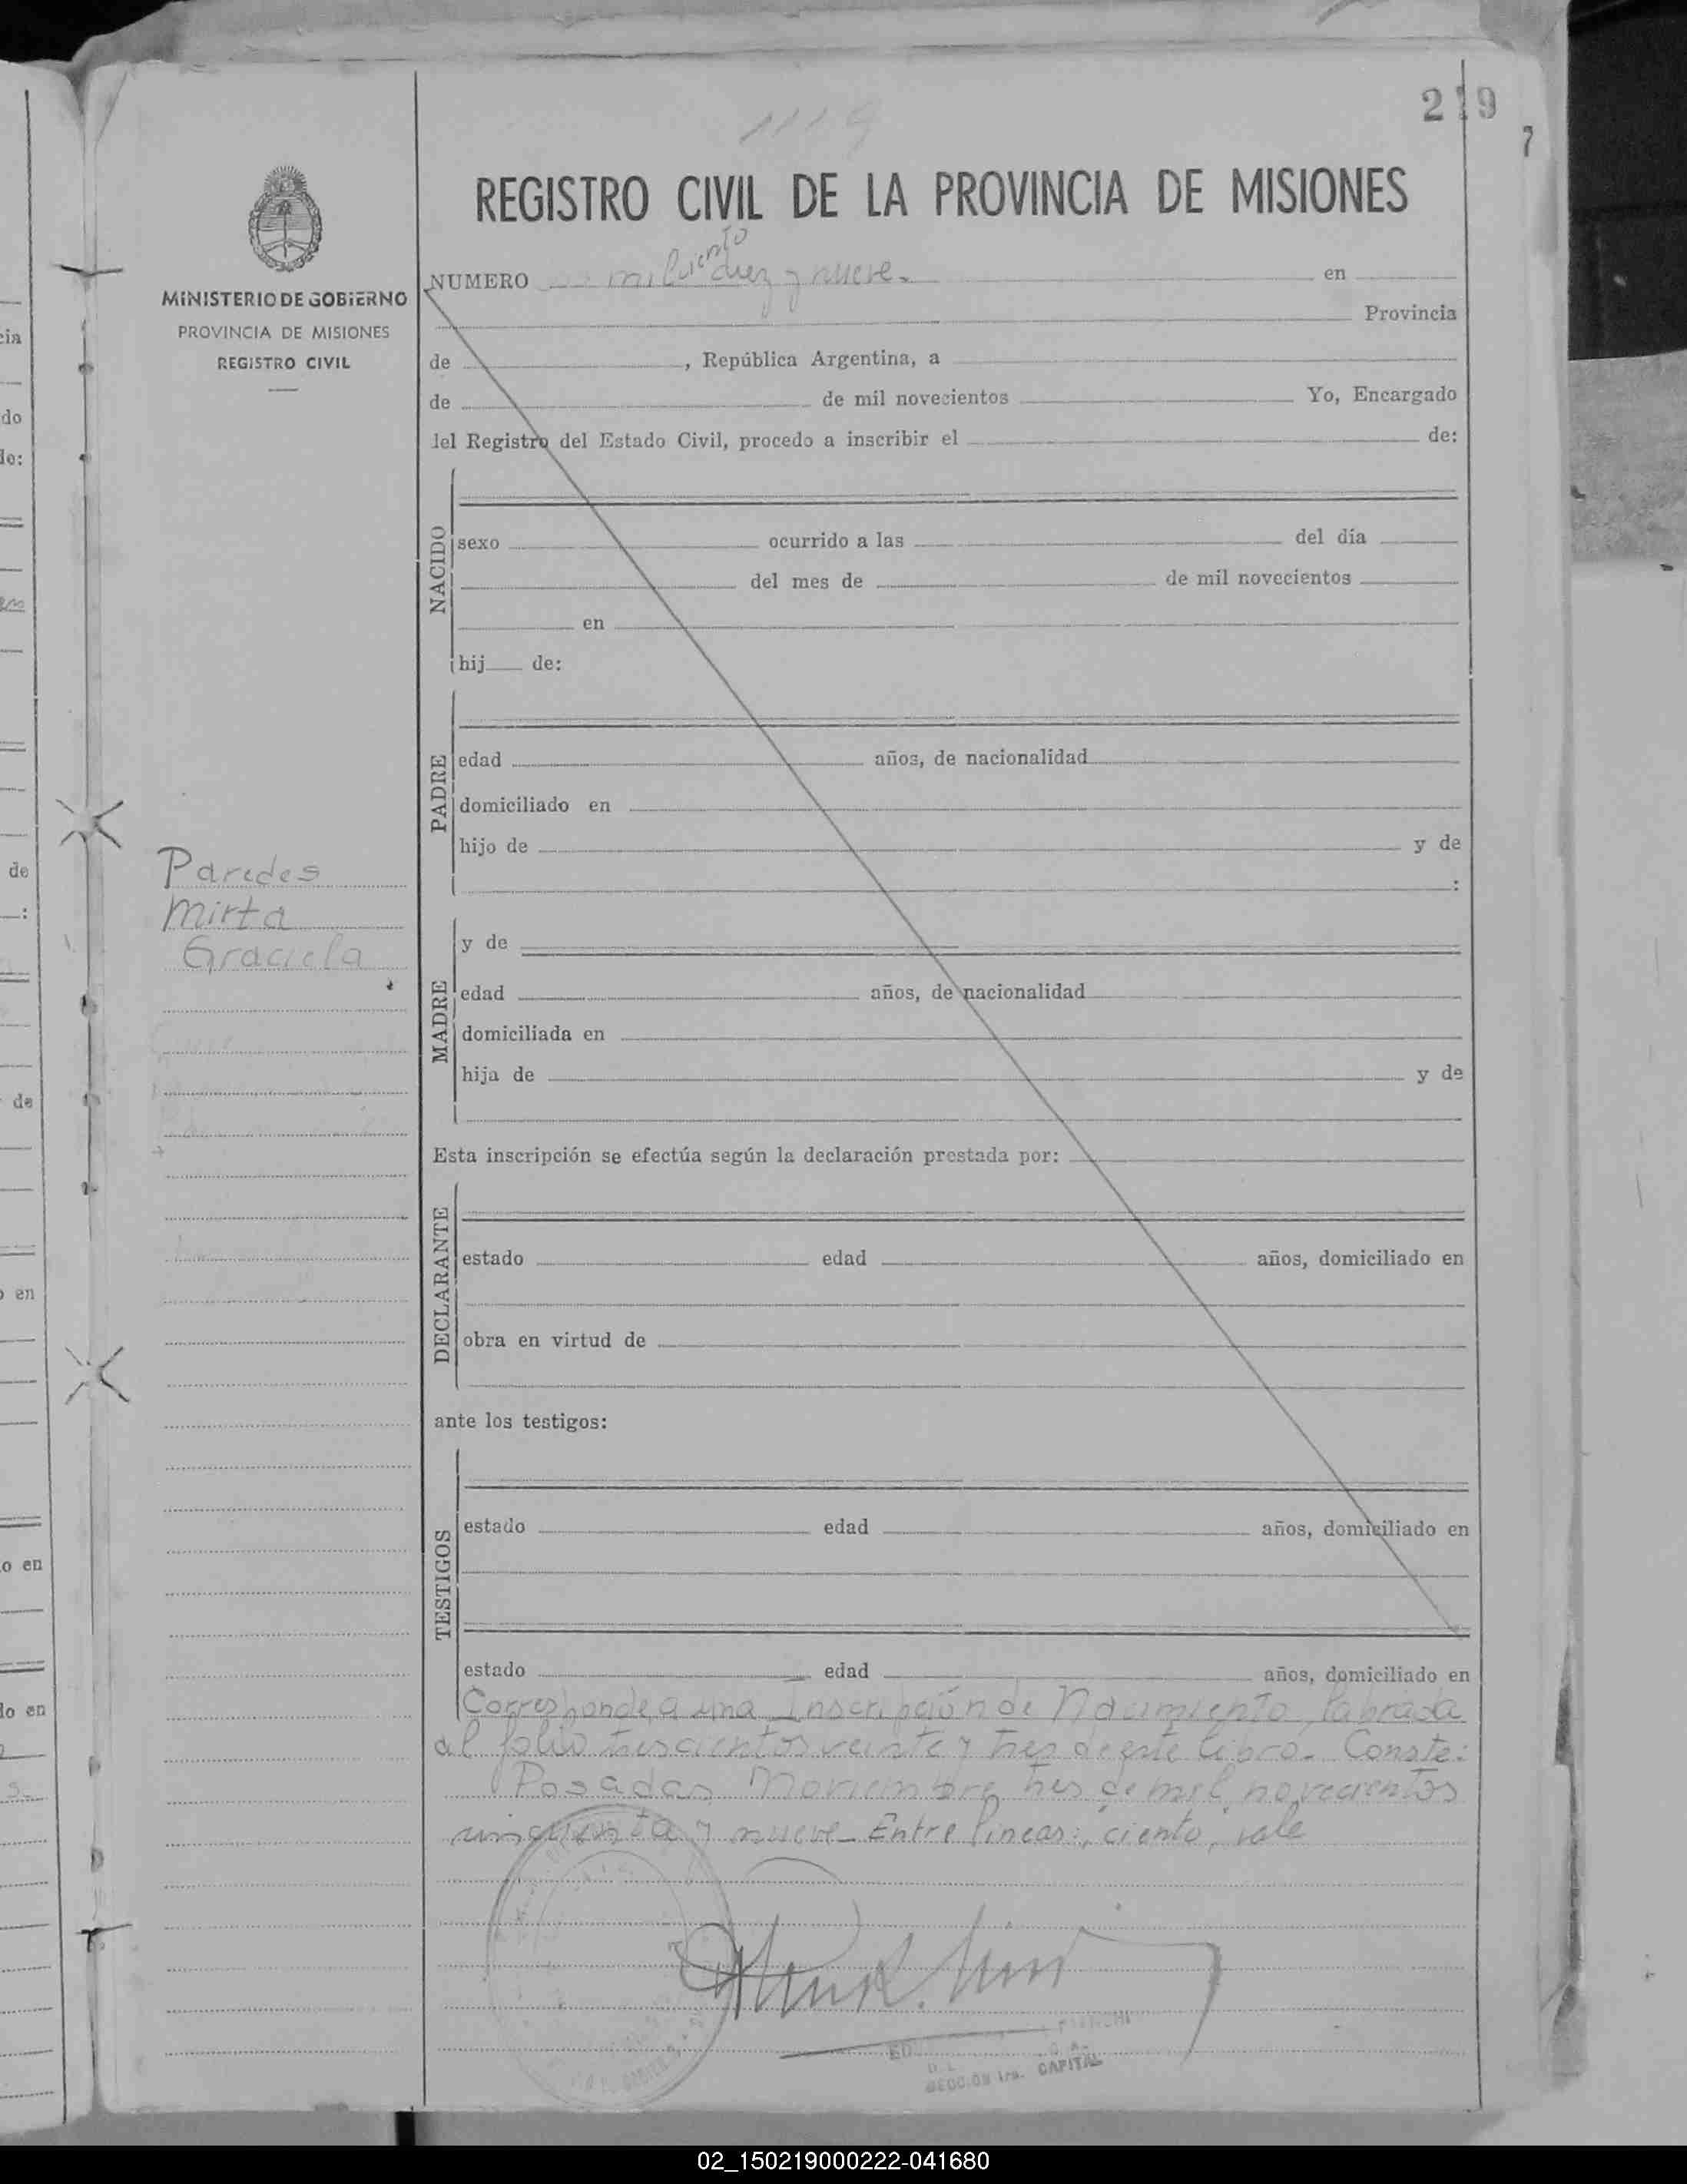 219
7
1119
REGISTRO CIVIL DE LA PROVINCIA DE MISIONES
MINISTERIO DE GOBIERNO
PROVINCIA DE MISIONES
REGISTRO CIVIL
NUMERO mil ciento diez y nueve. en
Provincia
de , República Argentina, a
de de mil novecientos Yo, Encargado
del Registro del Estado Civil, procedo a inscribir el de:
NACIDO
sexo ocurrido a las del día
del mes de de mil novecientos
en
hij de:
PADRE
edad años, de nacionalidad
domiciliado en
hijo de y de
:
Paredes
Mirta
Graciela
MADRE
y de
edad años, de nacionalidad
domiciliada en
hija de y de
Esta inscripción se efectúa según la declaración prestada por:
DECLARANTE
estado edad años, domiciliado en
obra en virtud de
ante los testigos:
TESTIGOS
estado edad años, domiciliado en
estado edad años, domiciliado en
Corresponde a una Inscripción de Nacimiento, labrada
al folio trescientos veinte y tres de este libro. Conste:
Posadas, Noviembre tres de mil novecientos
cincuenta y nueve_ Entre líneas: "ciento", vale
SECCION 1ra. CAPITAL
cia
do
do:
de
:
de
o en
o en
do en
02_150219000222-041680